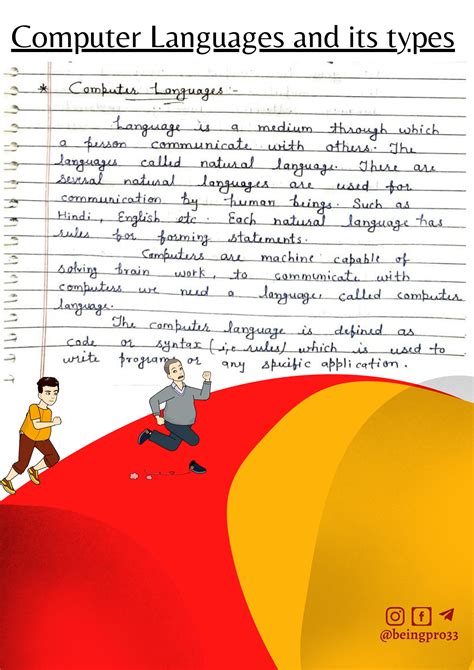 Computer Languages and its types
* Computer Languages :-
Language is a medium through which
a person communicate with others. The
languages called natural language. There are
several natural languages are used for
communication by human beings. Such as
Hindi, English etc. Each natural language has
rules for forming statements.
Computers are machine capable of
solving brain work, to communicate with
computers we need a language called computer
language.
The computer language is defined as
code or syntax (i,e rules) which is used to
write programs or any specific application.
@beingpro33